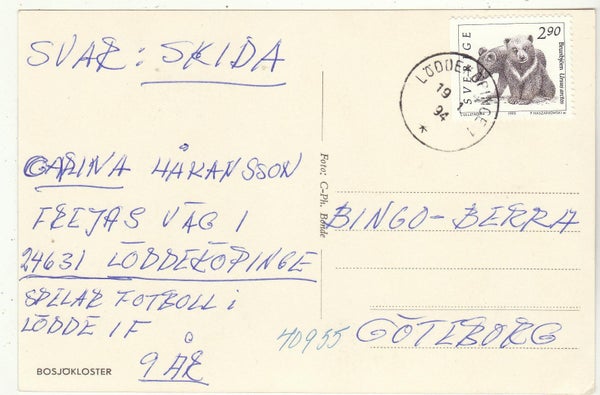 SVAR: SKIDA
CARINA HÅKANSSON
FREJAS VÄG 1
24631 LÖDDEKÖPINGE
SPELAR FOTBOLL i
LÖDDE IF
9 ÅR
BOSJÖKLOSTER
Foto: C-Ph. Bonde
2.90
SVERIGE
Brunbjörn Ursus arctos
LÖDDEKÖPINGE 1
19 1
94
BINGO-BERRA
40955 GÖTEBORG